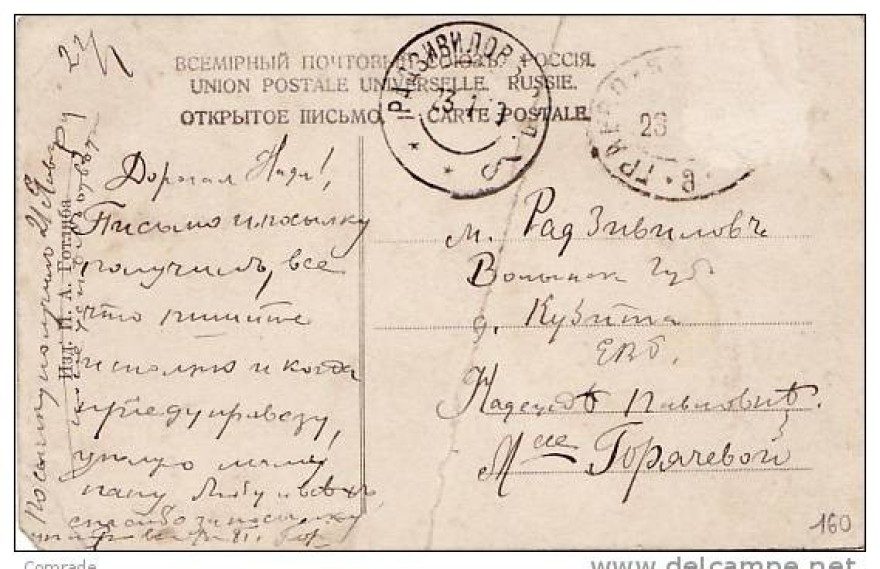 ВСЕМІРНЫЙ ПОЧТОВЫЙ СОЮЗЪ. РОССІЯ.
UNION POSTALE UNIVERSELLE. RUSSIE.
ОТКРЫТОЕ ПИСЬМО. — CARTE POSTALE.
РАДЗИВИЛОВЪ
23 1
23
22/I
Дорогая Надя!
Письмо и посылку
получилъ, все
что пишите
исполню и когда
приеду привезу,
целую маму
папу Любу и всѣхъ
спасибо за посылку
Посылку получилъ 21 Января
Изд. И. А. Готлиба
м. Радзивиловъ
Волынск губ
д. Кузита
ЕВБ.
Надеждѣ Павловнѣ.
Mlle Горячевой
160
Comrade
www.delcampe.net